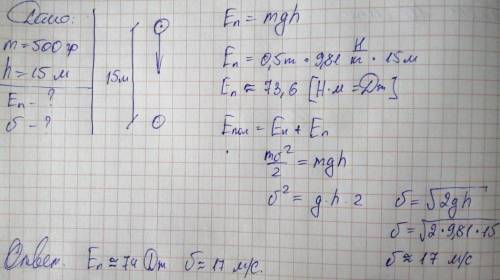 Дано:
m = 500 гр
h = 15 м
Eп - ?
υ - ?
15м
Eп = mgh
Eп = 0,5m · 9,81 Н/m · 15м
Eп ≈ 73,6 [Н·м = Dm]
Eпол = Eк + Eп
mυ²/2 = mgh
υ² = g·h·2
υ = √2gh
υ = √2·9,81·15
υ ≈ 17 м/с
Ответ. Eп ≈ 74 Dm υ ≈ 17 м/с.